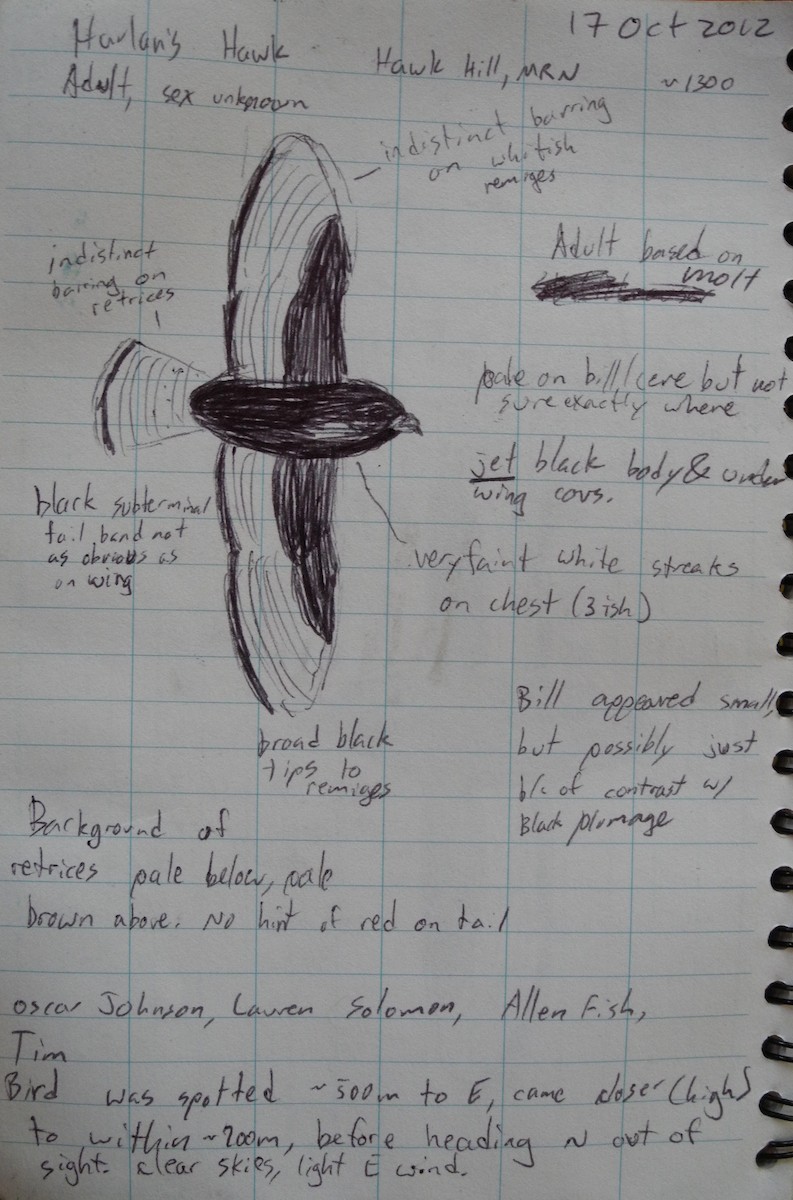 17 Oct 2012
Harlan's Hawk
Hawk Hill, MRN
~1300
Adult, sex unknown
indistinct barring
on whitish
remiges
indistinct
barring on
retrices
Adult based on
molt
pale on bill/cere but not
sure exactly where
jet black body & under
wing covs.
black subterminal
tail band not
as obvious as
on wing
very faint white streaks
on chest (3ish)
broad black
tips to
remiges
Bill appeared small,
but possibly just
b/c of contrast w/
Black plumage
Background of
retrices pale below, pale
brown above. No hint of red on tail
Oscar Johnson, Lauren Solomon, Allen Fish,
Tim
Bird was spotted ~500m to E, came closer (high)
to within ~200m, before heading N out of
sight. clear skies, light E wind.